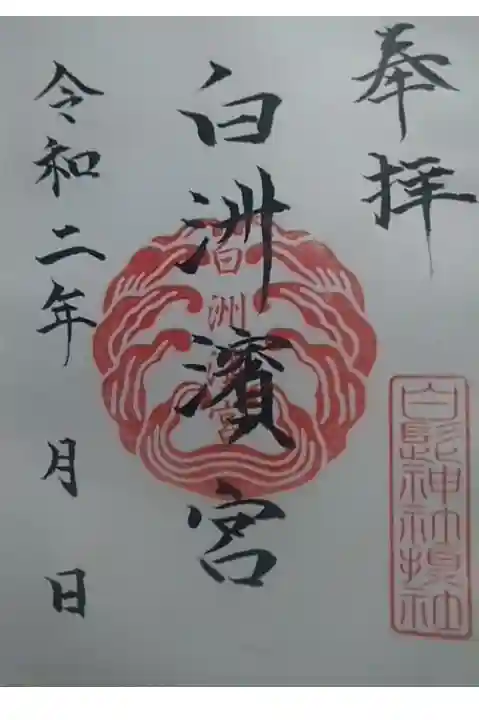 奉拝
白洲濱宮
白洲濱宮
白髭神社摂社
令和二年 月 日